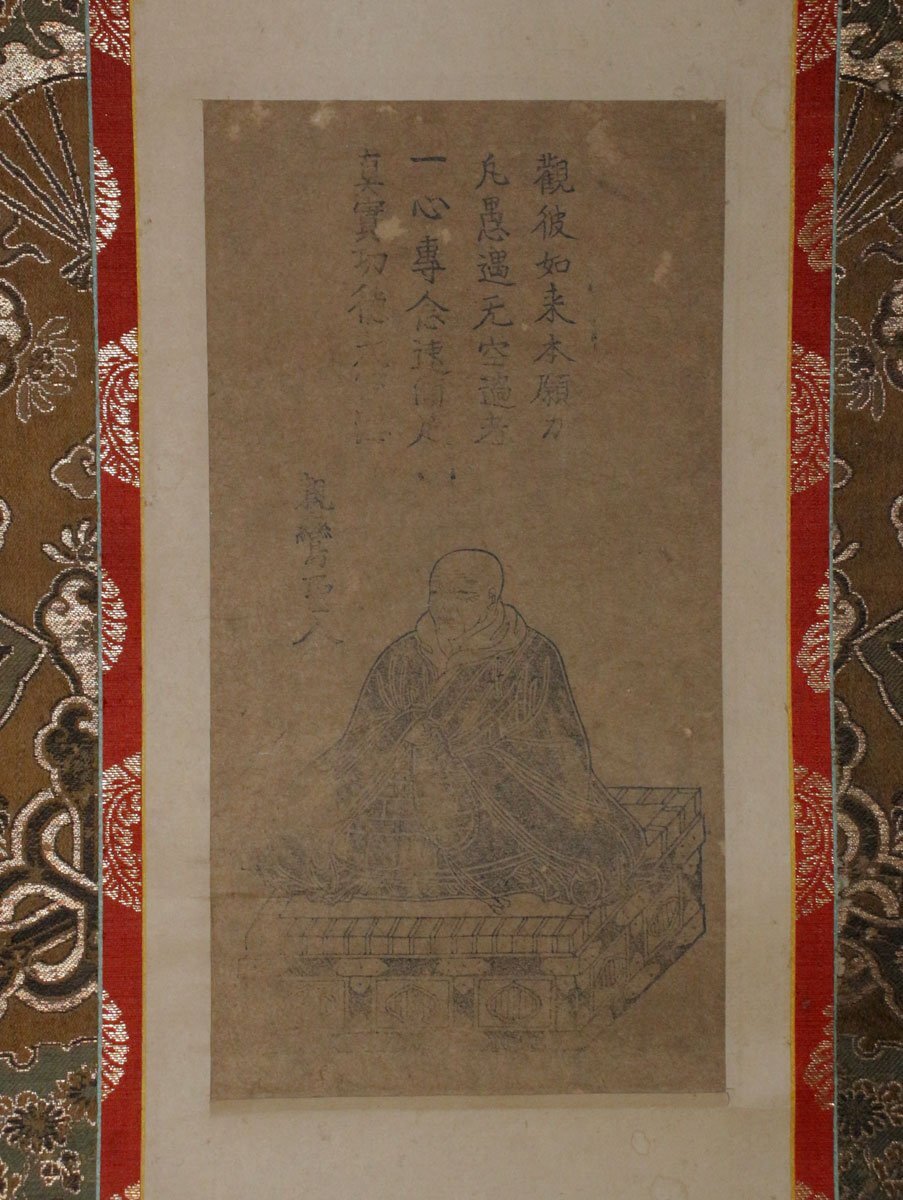 觀彼如来本願力
凡愚遇无空過者
一心專念速満足
真實功徳大寳海
親鸞聖人